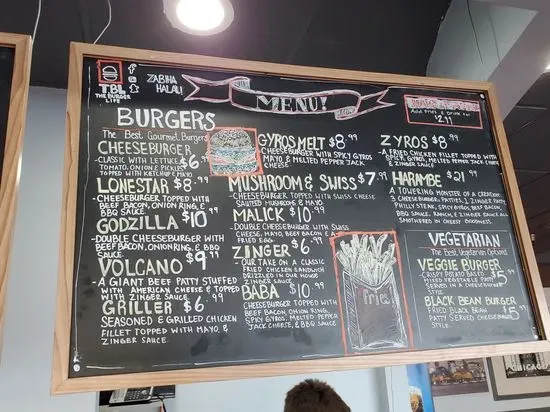 TBL
THE BURGER
LIFE
ZABIHA
HALAL!
MENU!
Add fries & drink for
$2.99
BURGERS
The Best Gourmet Burgers
CHEESEBURGER
-CLASSIC WITH LETTUCE $6.99
TOMATO, ONION & PICKLES
TOPPED WITH KETCHUP & MAYO
LONESTAR $8.99
-CHEESEBURGER TOPPED WITH
BEEF BACON, ONION RING, &
BBQ SAUCE
GODZILLA $10.99
-DOUBLE CHEESEBURGER WITH
BEEF BACON, ONION RING, & BBQ
SAUCE
VOLCANO $9.99
-A GIANT BEEF PATTY STUFFED
WITH AMERICAN CHEESE & TOPPED
WITH ZINGER SAUCE
GRILLER $6.99
SEASONED & GRILLED CHICKEN
FILLET TOPPED WITH MAYO, &
ZINGER SAUCE
GYROS MELT $8.99
CHEESEBURGER WITH SPICY GYROS
MAYO & MELTED PEPPER JACK
CHEESE
MUSHROOM & SWISS $7.99
-CHEESEBURGER TOPPED WITH SWISS CHEESE
SAUTEED MUSHROOMS & MAYO
MALICK $10.99
-DOUBLE CHEESEBURGER WITH SWISS
CHEESE, MAYO, BEEF BACON &
FRIED EGG
ZINGER $6.99
OUR TAKE ON A CLASSIC
FRIED CHICKEN SANDWICH
DRIZZLED IN OUR HOUSE
ZINGER SAUCE
BABA $10.99
CHEESEBURGER TOPPED WITH
BEEF BACON, ONION RING,
SPICY GYROS, MELTED PEPPER
JACK CHEESE, & BBQ SAUCE
fries
ZYROS $8.99
-A FRIED CHICKEN FILLET TOPPED WITH
SPICY GYROS, MELTED PEPPER JACK CHEESE
& ZINGER SAUCE
HARAMBE $21.99
A TOWERING MONSTER OF A CREATION.
3 CHEESEBURGER PATTIES, 1 ZINGER PATTY
PHILLY STEAK, SPICY GYROS, BEEF BACON,
BBQ SAUCE, RANCH, & ZINGER SAUCE ALL
SMOTHERED IN CHEESY GOODNESS.
VEGETARIAN
The Best Vegetarian Options!
VEGGIE BURGER
CRISPY POTATO BASED $5.99
MIXED VEGETABLE PATTY
SERVED IN A CHEESEBURGER
STYLE
BLACK BEAN BURGER
FRIED BLACK BEAN $5.99
PATTY SERVED CHEESEBURGER
STYLE
CHICAGO